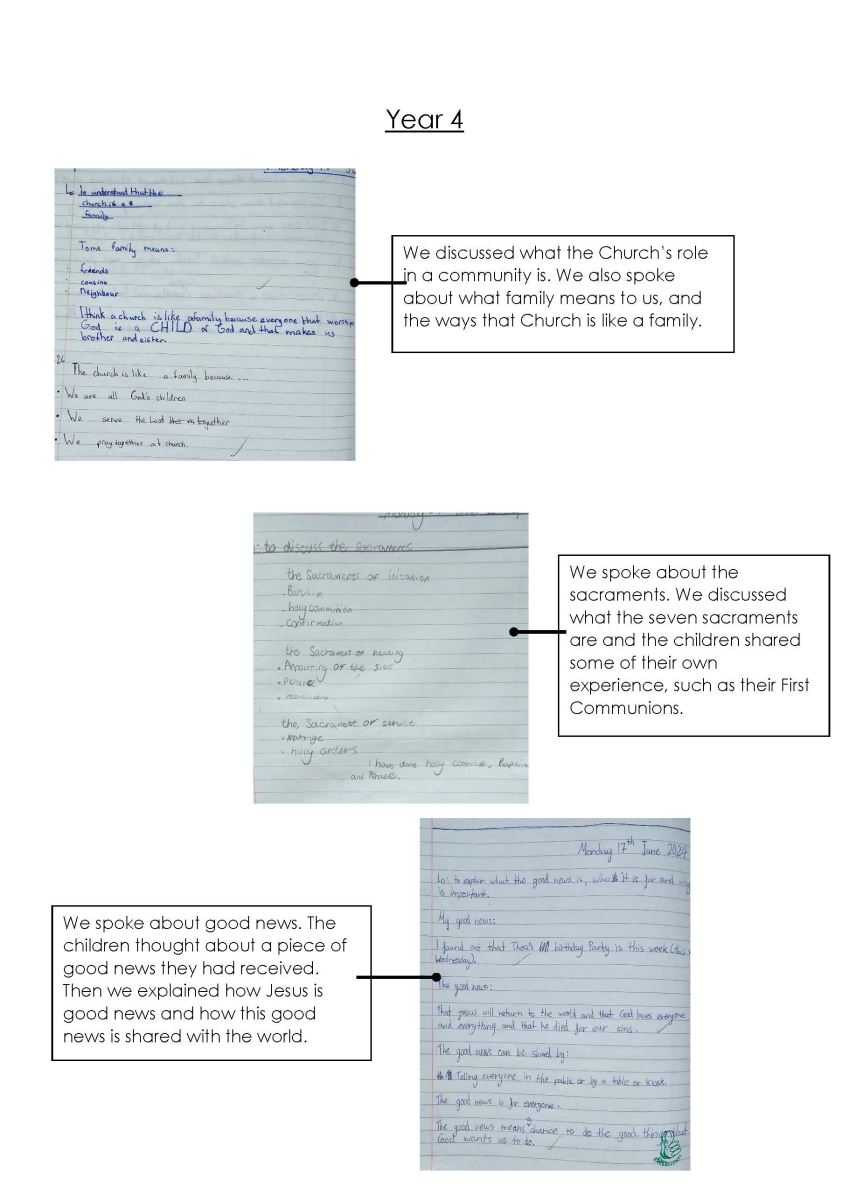 Year 4
Lo to understand that the
church is a
family
To me family means:
friends
cousins
Neighbour
I think a church is like a family because everyone that worship
God is a CHILD of God and that makes us
brother and sister.
The church is like a family because ...
• We are all God's children
• We serve the Lord together
• We pray together at church.
We discussed what the Church's role
in a community is. We also spoke
about what family means to us, and
the ways that Church is like a family.
to discuss the Sacraments
the Sacraments of
• holy communion
• confirmation
the Sacrament of healing
of the sick
the Sacrament of service
• holy orders
I have done holy
and
We spoke about the
sacraments. We discussed
what the seven sacraments
are and the children shared
some of their own
experience, such as their First
Communions.
Monday 17th June 2024
Lo: to explain what the good news is, who it is for and why
is important.
My good news:
I found out that Thea's birthday Party is this week (this
Wednesday).
The good news:
That jesus will return to the world and that God loves everyone
and everything and that he died for our sins.
The good news can be shared by:
Telling everyone in the public or by a table or kiosk.
The good news is for everyone.
The good news means a chance to do the good things that
God wants us to do.
We spoke about good news. The
children thought about a piece of
good news they had received.
Then we explained how Jesus is
good news and how this good
news is shared with the world.